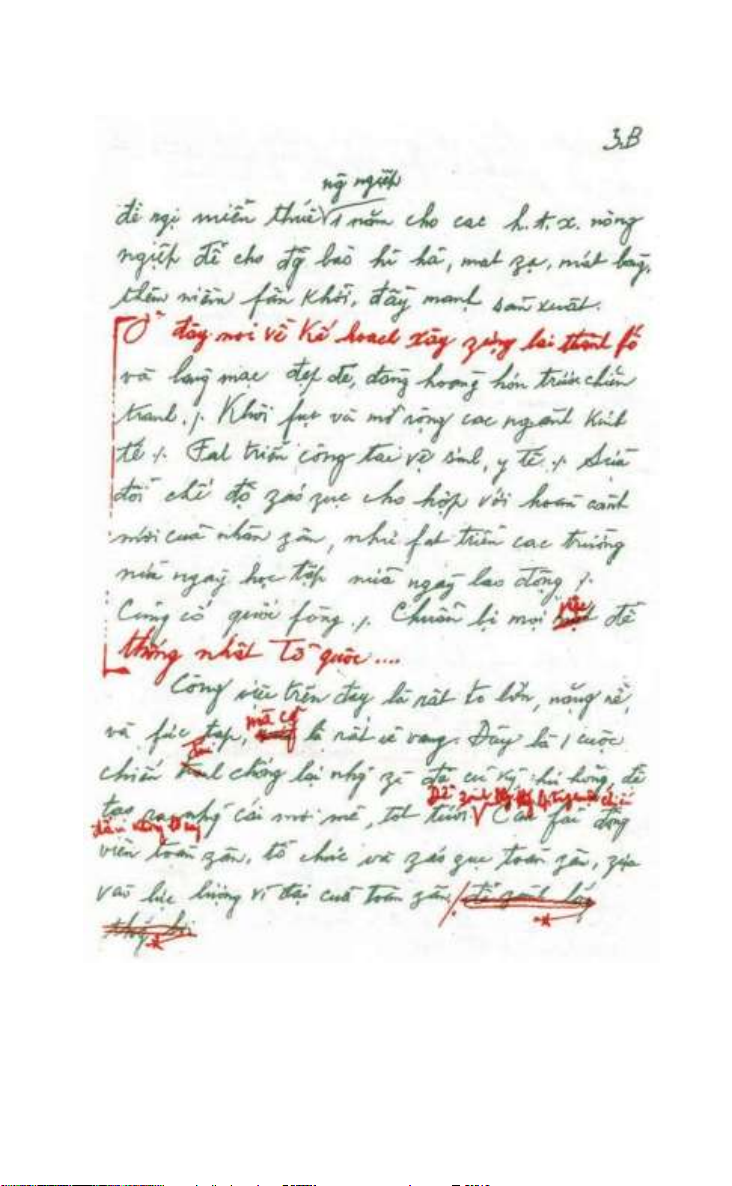 3.B
ng ngiệp
đề ngị miễn thuế 1 năm cho cac h.t.x. nông
ngiệp để cho đg bào hỉ hả, mat zạ, mát
thêm niềm fấn khởi, đẩy mạnh sản xuất.
Ở đây noi về kế hoạch xây zựng lại thành fố
và lang mạc đẹp đẽ, đàng hoang hơn trước chiến
tranh ./. Khôi fục và mở rộng cac ngành kinh
tế ./. Fat triển công tac vệ sinh, y tế ./. Sửa
đổi chế độ záo zục cho hợp với hoàn cảnh
mới của nhân zân, như fat triển cac trường
nửa ngày học tập nửa ngày lao động ./.
Củng cố quốc fòng ./. Chuẩn bị mọi việc để
thống nhất Tổ quốc ....
Công việc trên đây là rất to lớn, nặng nề,
và fức tạp, mà cg là rất vẻ vang. Đây là 1 cuộc
chiến đấu chống lại nhg zì đã cũ kỹ, hư hỏng, để
tạo ra nhg cái mới mẻ, tốt tươi. Để zành lấy thắng lợi trong cuộc chiến
đấu khổng lồ này
Cần fải động
viên toàn zân, tổ chức và záo zục toàn zân, zựa
vào lực lượng vĩ đại của toàn zân, để zành lấy
thắng lợi